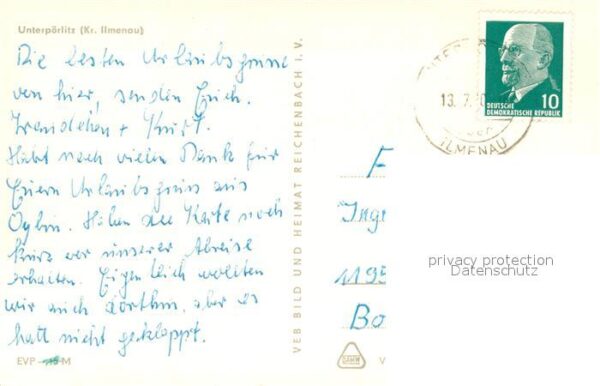 Unterpörlitz (Kr. Ilmenau)
Die besten Urlaubsgrüsse
von hier, senden Euch.
Trendchen + Kurt.
Habt noch vielen Dank für
Euern Urlaubsgruss aus
Oybin. Haben die Karte noch
kurz vor unserer Abreise
erhalten. Eigentlich wollten
wir auch dorthin, aber es
hatt nicht geklappt.
EVP M
VEB BILD UND HEIMAT REICHENBACH I. V.
13. 7.
ILMENAU
DEUTSCHE
DEMOKRATISCHE REPUBLIK
10
F
Inge
1195
Bo
privacy protection
Datenschutz
V